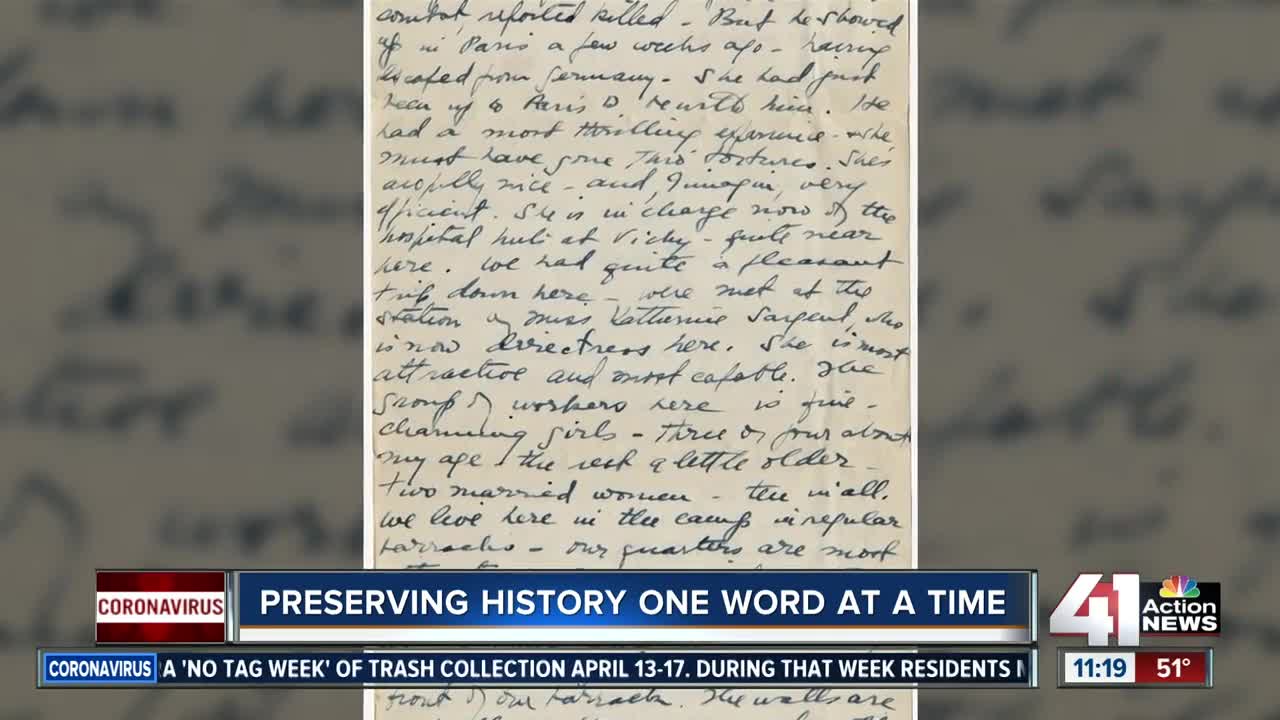 combat, reported killed - But he showed
up in Paris a few weeks ago - having
escaped from Germany - She had just
been up to Paris to be with him. He
had a most thrilling experience - & she
must have gone thro' tortures. She's
awfully nice - and, I imagine, very
efficient. She is in charge now of the
hospital hut at Vichy - quite near
here. We had quite a pleasant
trip down here - were met at the
station by Miss Katherine Sargent, who
is now directress here. She is most
attractive and most capable. The
group of workers here is fine -
charming girls - three or four about
my age - the rest a little older -
two married women - ten in all.
We live here in the camp in regular
barracks - our quarters are most
CORONAVIRUS
PRESERVING HISTORY ONE WORD AT A TIME
41
Action
NEWS
CORONAVIRUS
A 'NO TAG WEEK' OF TRASH COLLECTION APRIL 13-17. DURING THAT WEEK RESIDENTS
11:19 51°
front of our barracks. The walls are